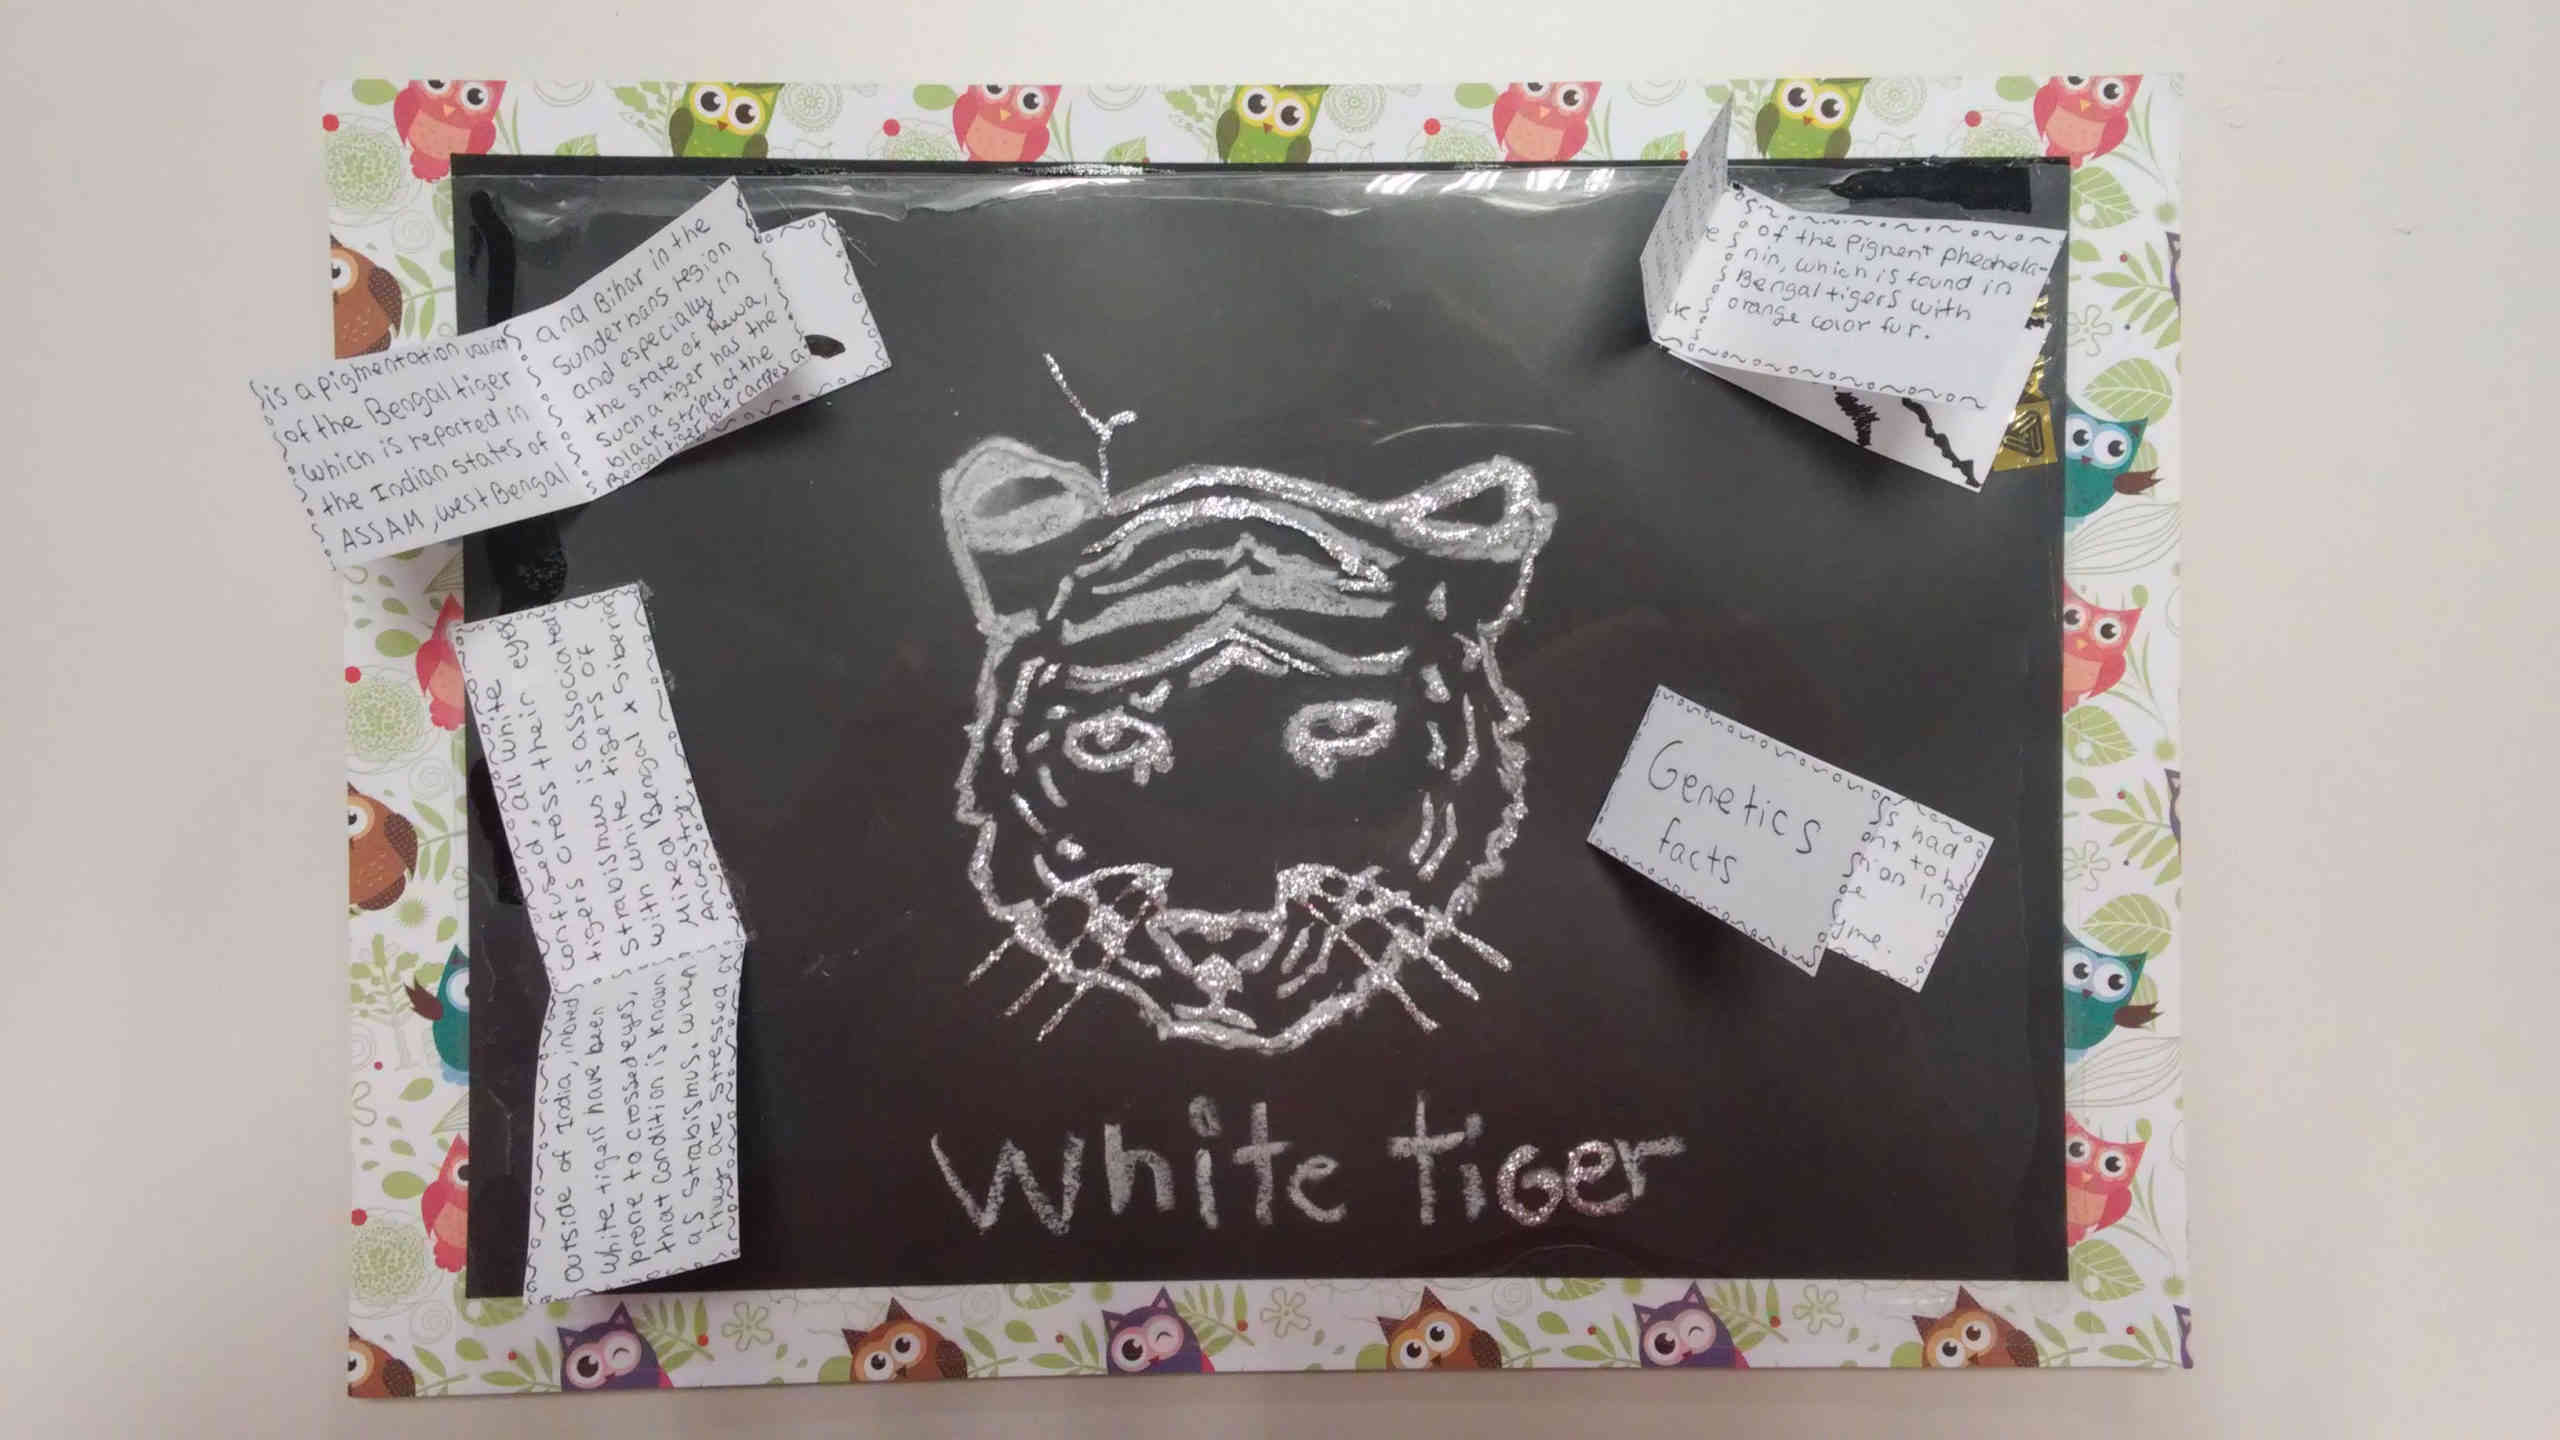 is a pigmentation
of the Bengal tiger
which is reported in
the Indian states of
ASSAM, west Bengal
and Bihar in the
Sunderbans region
and especially in
the state of Rewa,
such a tiger has the
black stripes of the
Bengal tiger, but carries a
of the pigment pheohela-
nin, which is found in
Bengal tigers with
orange color fur.
outside of India, inbred
white tigers have been
prone to crossed eyes,
that condition is known
as strabismus. when
they are stressed or
confused, all white
tigers cross their eyes
strabismus is associated
with white tigers of
Mixed Bengal x Siberian
Ancestry.
Genetics
facts
had
to be
in
White tiger